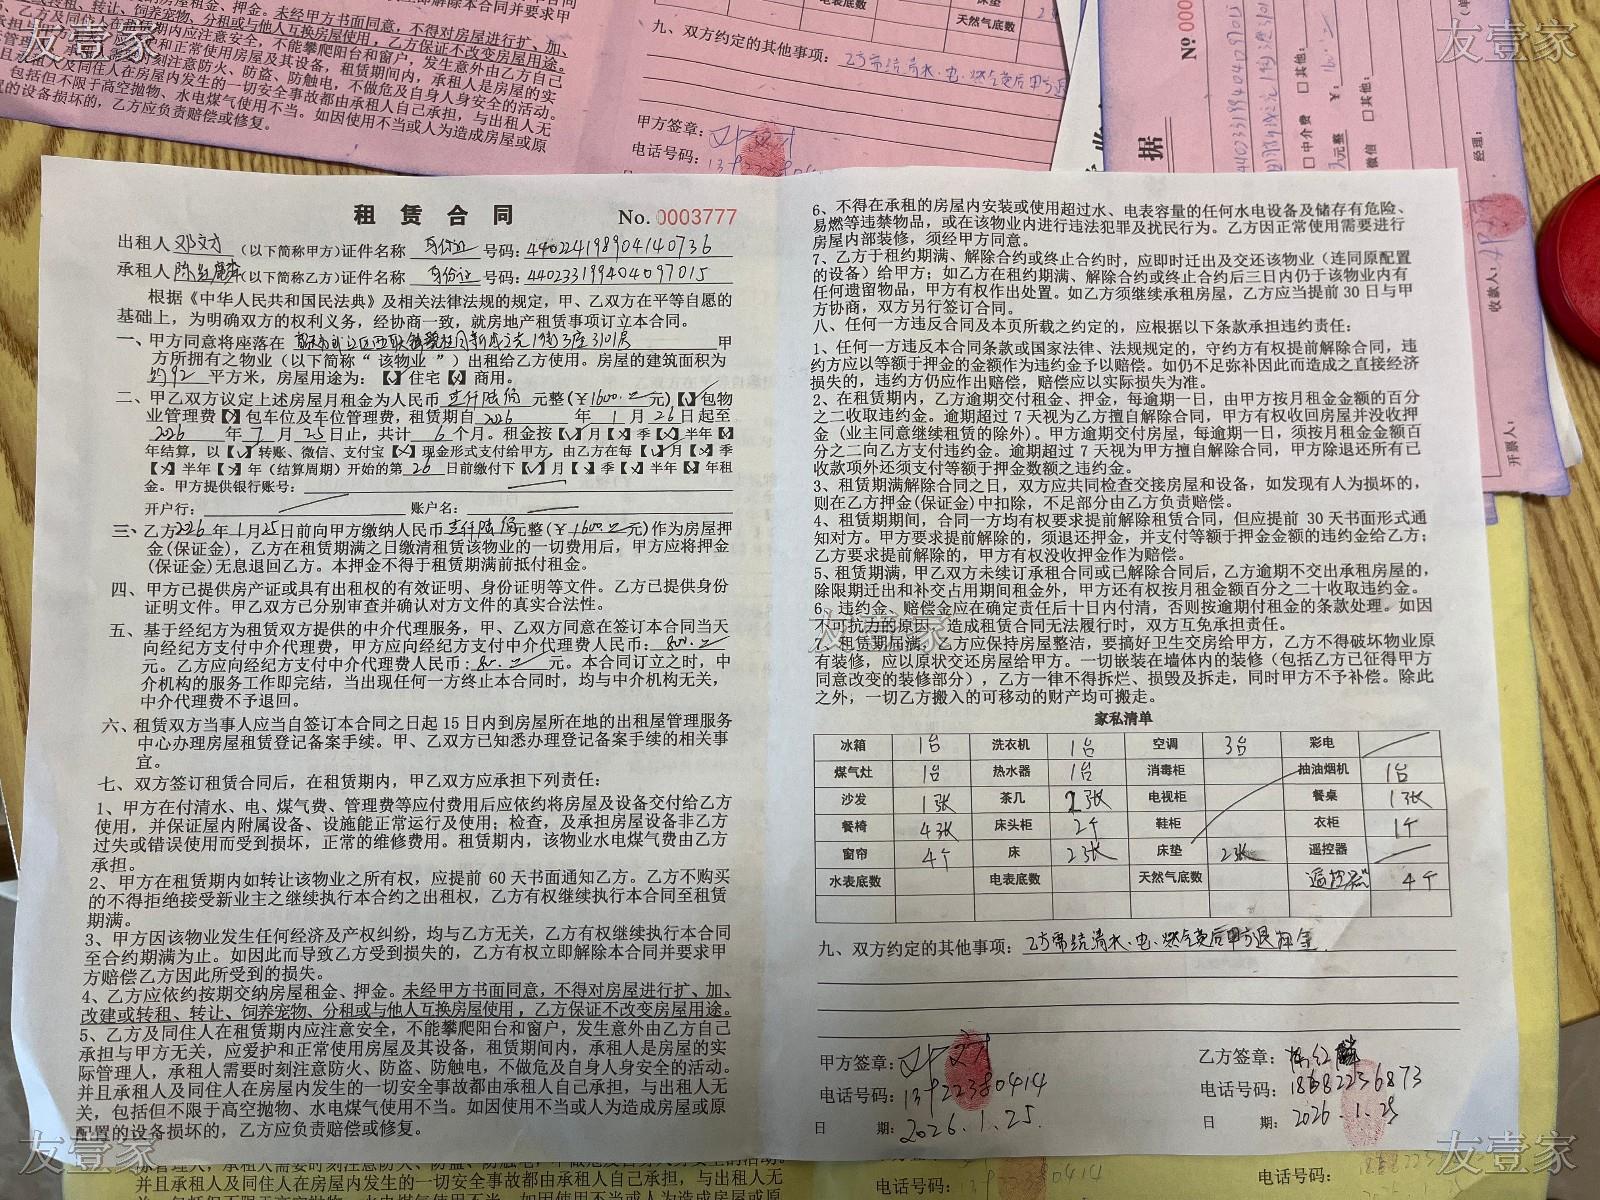 友壹家
友壹家
九、双方约定的其他事项：
甲方签章：
电话号码：
租 赁 合 同 No. 0003777
出租人 邓文才 （以下简称甲方）证件名称 身份证 号码：440224198904140736
承租人 （以下简称乙方）证件名称 身份证 号码：440233199404097015
根据《中华人民共和国民法典》及相关法律法规的规定，甲、乙双方在平等自愿的
基础上，为明确双方的权利义务，经协商一致，就房地产租赁事项订立本合同。
一、甲方同意将座落在 3座3101房 甲
方所拥有之物业（以下简称“ 该物业 ”）出租给乙方使用。房屋的建筑面积为
约92 平方米，房屋用途为：【√】住宅【×】商用。
二、甲乙双方议定上述房屋月租金为人民币 壹仟陆佰 元整（￥1600.00元）【 】包物
业管理费【×】包车位及车位管理费，租赁期自 2026 年 1 月 26 日起至
2026 年 7 月 25 日止，共计 6 个月。租金按【√】月【×】季【×】半年【×】
年结算，以【√】转账、微信、支付宝【×】现金形式支付给甲方，由乙方在每【√】月【×】季
【×】半年【×】年（结算周期）开始的第 26 日前缴付下【√】月【×】季【×】半年【×】年租
金。甲方提供银行账号：
开户行： 账户名：
三、乙方2026年1月25日前向甲方缴纳人民币壹仟陆佰元整（￥1600.00元）作为房屋押
金(保证金)，乙方在租赁期满之日缴清租赁该物业的一切费用后，甲方应将押金
(保证金)无息退回乙方。本押金不得于租赁期满前抵付租金。
四、甲方已提供房产证或具有出租权的有效证明、身份证明等文件。乙方已提供身份
证明文件。甲乙双方已分别审查并确认对方文件的真实合法性。
五、基于经纪方为租赁双方提供的中介代理服务，甲、乙双方同意在签订本合同当天
向经纪方支付中介代理费，甲方应向经纪方支付中介代理费人民币：800.00
元。乙方应向经纪方支付中介代理费人民币：800.00元。本合同订立之时，中
介机构的服务工作即完结，当出现任何一方终止本合同时，均与中介机构无关，
中介代理费不予退回。
六、租赁双方当事人应当自签订本合同之日起15日内到房屋所在地的出租屋管理服务
中心办理房屋租赁登记备案手续。甲、乙双方已知悉办理登记备案手续的相关事
宜。
七、双方签订租赁合同后，在租赁期内，甲乙双方应承担下列责任：
1、甲方在付清水、电、煤气费、管理费等应付费用后应依约将房屋及设备交付给乙方
使用，并保证屋内附属设备、设施能正常运行及使用；检查，及承担房屋设备非乙方
过失或错误使用而受到损坏，正常的维修费用。租赁期内，该物业水电煤气费由乙方
承担。
2、甲方在租赁期内如转让该物业之所有权，应提前60天书面通知乙方。乙方不购买
的不得拒绝接受新业主之继续执行本合约之出租权，乙方有权继续执行本合同至租赁
期满。
3、甲方因该物业发生任何经济及产权纠纷，均与乙方无关，乙方有权继续执行本合同
至合约期满为止。如因此而导致乙方受到损失的，乙方有权立即解除本合同并要求甲
方赔偿乙方因此所受到的损失。
4、乙方应依约按期交纳房屋租金、押金。未经甲方书面同意，不得对房屋进行扩、加、
改建或转租、转让、饲养宠物、分租或与他人互换房屋使用，乙方保证不改变房屋用途。
5、乙方及同住人在租赁期内应注意安全，不能攀爬阳台和窗户，发生意外由乙方自己
承担与甲方无关，应爱护和正常使用房屋及其设备，租赁期间内，承租人是房屋的实
际管理人，承租人需要时刻注意防火、防盗、防触电，不做危及自身人身安全的活动。
并且承租人及同住人在房屋内发生的一切安全事故都由承租人自己承担，与出租人无
关，包括但不限于高空抛物、水电煤气使用不当。如因使用不当或人为造成房屋或原
配置的设备损坏的，乙方应负责赔偿或修复。
6、不得在承租的房屋内安装或使用超过水、电表容量的任何水电设备及储存有危险、
易燃等违禁物品，或在该物业内进行违法犯罪及扰民行为。乙方因正常使用需要进行
房屋内部装修，须经甲方同意。
7、乙方于租约期满、解除合约或终止合约时，应即时迁出及交还该物业（连同原配置
的设备）给甲方；如乙方在租约期满、解除合约或终止合约后三日内仍于该物业内有
任何遗留物品，甲方有权作出处置。如乙方须继续承租房屋，乙方应当提前30日与甲
方协商，双方另行签订合同。
八、任何一方违反合同及本页所载之约定的，应根据以下条款承担违约责任：
1、任何一方违反本合同条款或国家法律、法规规定的，守约方有权提前解除合同，违
约方应以等额于押金的金额作为违约金予以赔偿。如仍不足弥补因此而造成之直接经济
损失的，违约方仍应作出赔偿，赔偿应以实际损失为准。
2、在租赁期内，乙方逾期交付租金、押金，每逾期一日，由甲方按月租金金额的百分
之二收取违约金。逾期超过7天视为乙方擅自解除合同，甲方有权收回房屋并没收押
金（业主同意继续租赁的除外）。甲方逾期交付房屋，每逾期一日，须按月租金金额百
分之二向乙方支付违约金。逾期超过7天视为甲方擅自解除合同，甲方除退还所有已
收款项外还须支付等额于押金数额之违约金。
3、租赁期满解除合同之日，双方应共同检查交接房屋和设备，如发现有人为损坏的，
则在乙方押金(保证金)中扣除，不足部分由乙方负责赔偿。
4、租赁期期间，合同一方均有权要求提前解除租赁合同，但应提前 30 天书面形式通
知对方。甲方要求提前解除的，须退还押金，并支付等额于押金金额的违约金给乙方；
乙方要求提前解除的，甲方有权没收押金作为赔偿。
5、租赁期满，甲乙双方未续订承租合同或已解除合同后，乙方逾期不交出承租房屋的，
除限期迁出和补交占用期间租金外，甲方还有权按月租金额百分之二十收取违约金。
6、违约金、赔偿金应在确定责任后十日内付清，否则按逾期付租金的条款处理。如因
不可抗力的原因，造成租赁合同无法履行时，双方互免承担责任。
7、租赁期届满，乙方应保持房屋整洁，要搞好卫生交房给甲方，乙方不得破坏物业原
有装修，应以原状交还房屋给甲方。一切嵌装在墙体内的装修（包括乙方已征得甲方
同意改变的装修部分），乙方一律不得拆烂、损毁及拆走，同时甲方不予补偿。除此
之外，一切乙方搬入的可移动的财产均可搬走。
友壹家
家私清单
冰箱 1台 洗衣机 1台 空调 3台 彩电
煤气灶 1台 热水器 1台 消毒柜 抽油烟机 1台
沙发 1张 茶几 1张 电视柜 餐桌 1张
餐椅 4张 床头柜 2个 鞋柜 衣柜 1个
窗帘 4个 床 2张 床垫 2张 遥控器
水表底数 电表底数 天然气底数 遥控器 4个
九、双方约定的其他事项：乙方需结清水、电、燃气费后甲方退押金
甲方签章：邓文才
电话号码：13922380414
日 期：2026.1.25.
乙方签章：
电话号码：18682236873
日 期：2026.1.25
友壹家
友壹家
电话号码：